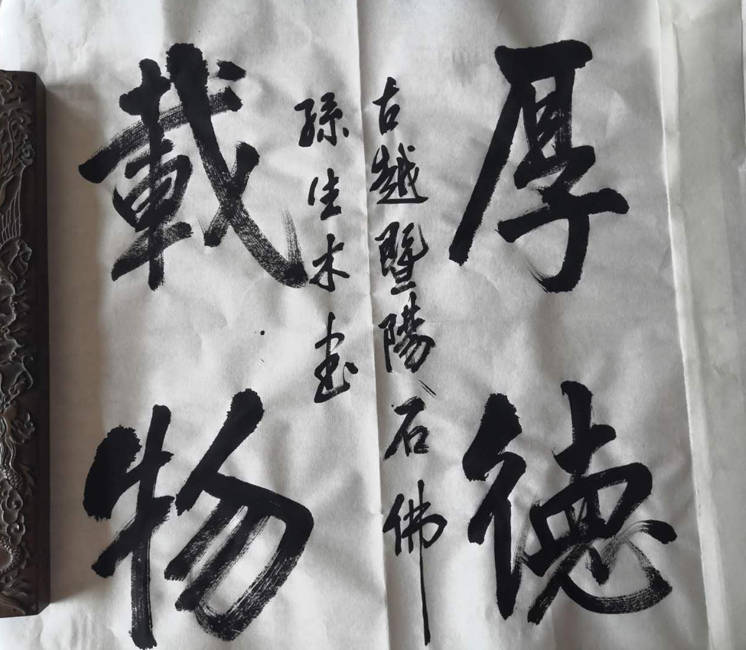 厚德
古越暨陽石佛
孫生木書
載物